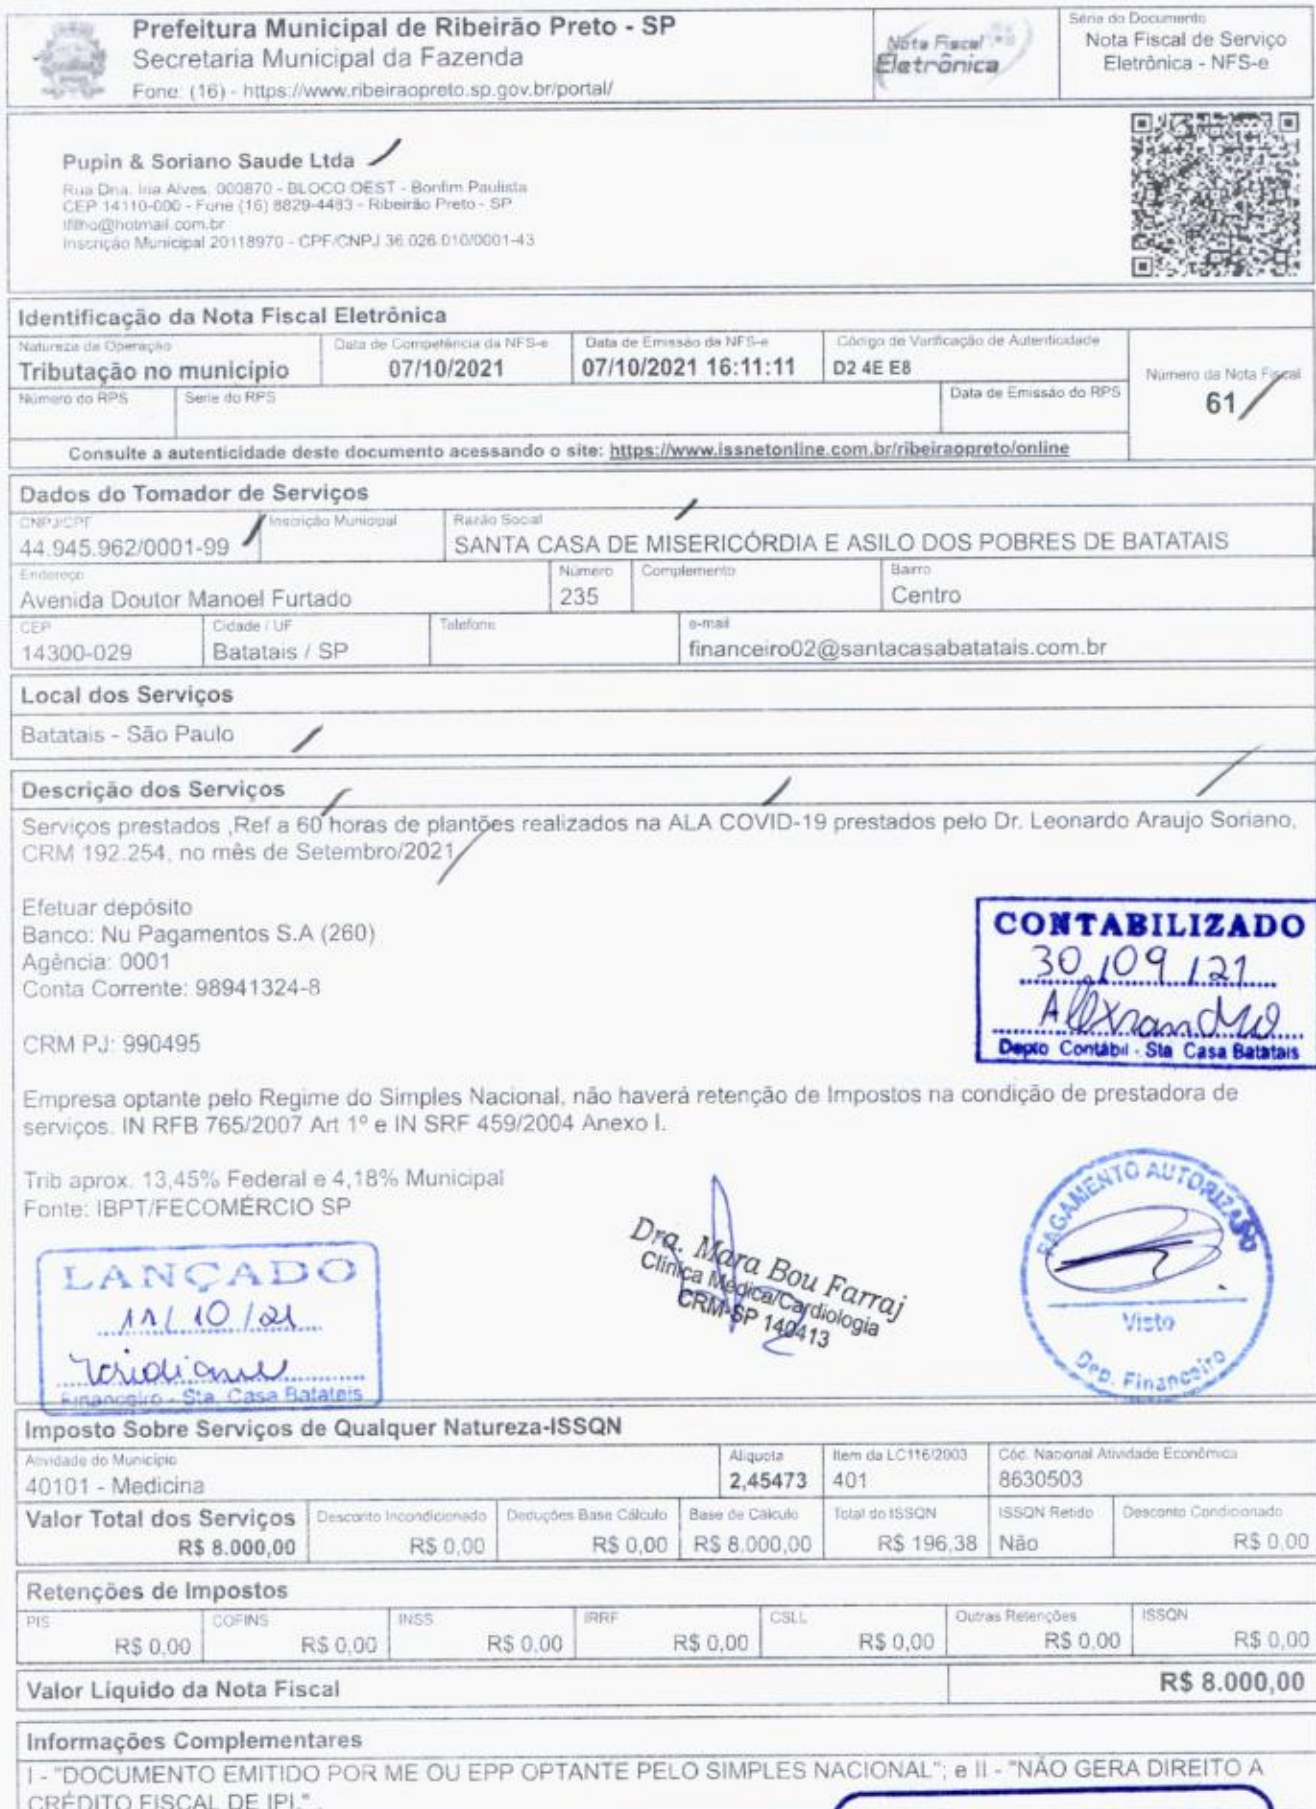 Prefeitura Municipal de Ribeirão Preto - SP
Secretaria Municipal da Fazenda
Fone: (16) - https://www.ribeiraopreto.sp.gov.br/portal/
Nota Fiscal
Eletrônica
Série do Documento
Nota Fiscal de Serviço
Eletrônica - NFS-e
Pupin & Soriano Saude Ltda
Rua Dna. Iria Alves, 000870 - BLOCO OEST - Bonfim Paulista
CEP 14110-000 - Fone (16) 8829-4483 - Ribeirão Preto - SP
@hotmail.com.br
Inscrição Municipal 20118970 - CPF/CNPJ 36.026.010/0001-43
Identificação da Nota Fiscal Eletrônica
Natureza da Operação
Tributação no município
Data de Competência da NFS-e
07/10/2021
Data de Emissão da NFS-e
07/10/2021 16:11:11
Código de Verificação de Autenticidade
D2 4E E8
Número da Nota Fiscal
61
Número do RPS
Serie do RPS
Data de Emissão do RPS
Consulte a autenticidade deste documento acessando o site: https://www.issnetonline.com.br/ribeiraopreto/online
Dados do Tomador de Serviços
CNPJ/CPF
44.945.962/0001-99
Inscrição Municipal
Razão Social
SANTA CASA DE MISERICÓRDIA E ASILO DOS POBRES DE BATATAIS
Endereço
Avenida Doutor Manoel Furtado
Número
235
Complemento
Bairro
Centro
CEP
14300-029
Cidade / UF
Batatais / SP
Telefone
e-mail
financeiro02@santacasabatatais.com.br
Local dos Serviços
Batatais - São Paulo
Descrição dos Serviços
Serviços prestados ,Ref a 60 horas de plantões realizados na ALA COVID-19 prestados pelo Dr. Leonardo Araujo Soriano,
CRM 192.254, no mês de Setembro/2021
Efetuar depósito
Banco: Nu Pagamentos S.A (260)
Agência: 0001
Conta Corrente: 98941324-8
CONTABILIZADO
30/09/21
Alexandre
Depto Contábil - Sta Casa Batatais
CRM PJ: 990495
Empresa optante pelo Regime do Simples Nacional, não haverá retenção de Impostos na condição de prestadora de
serviços. IN RFB 765/2007 Art 1º e IN SRF 459/2004 Anexo I.
Trib aprox. 13,45% Federal e 4,18% Municipal
Fonte: IBPT/FECOMÉRCIO SP
LANÇADO
11/10/21
Financeiro - Sta. Casa Batatais
Dra. Mara Bou Farraj
Clínica Médica/Cardiologia
CRM-SP 140413
PAGAMENTO AUTORIZADO
Visto
Dep. Financeiro
Imposto Sobre Serviços de Qualquer Natureza-ISSQN
Atividade do Município
40101 - Medicina
Alíquota
2,45473
Item da LC116/2003
401
Cód. Nacional Atividade Econômica
8630503
Valor Total dos Serviços
R$ 8.000,00
Desconto Incondicionado
R$ 0,00
Deduções Base Cálculo
R$ 0,00
Base de Cálculo
R$ 8.000,00
Total do ISSQN
R$ 196,38
ISSQN Retido
Não
Desconto Condicionado
R$ 0,00
Retenções de Impostos
PIS
R$ 0,00
COFINS
R$ 0,00
INSS
R$ 0,00
IRRF
R$ 0,00
CSLL
R$ 0,00
Outras Retenções
R$ 0,00
ISSQN
R$ 0,00
Valor Líquido da Nota Fiscal
R$ 8.000,00
Informações Complementares
I - "DOCUMENTO EMITIDO POR ME OU EPP OPTANTE PELO SIMPLES NACIONAL"; e II - "NÃO GERA DIREITO A
CRÉDITO FISCAL DE IPI." .